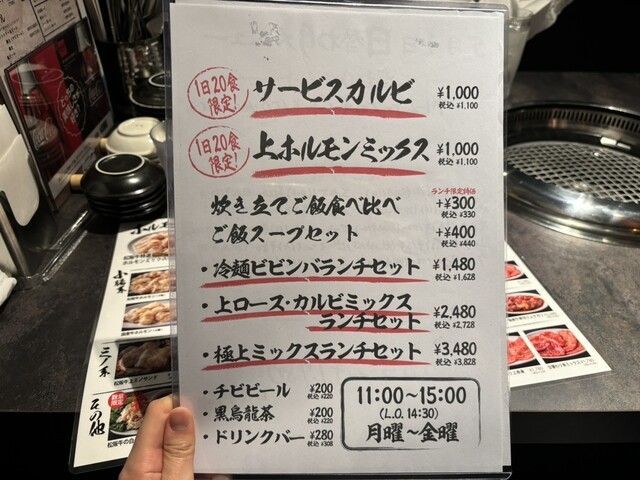 1日20食
限定!
サービスカルビ
¥1,000
税込 ¥1,100
1日20食
限定!
上ホルモンミックス
¥1,000
税込 ¥1,100
ランチ限定特価
炊き立てご飯食べ比べ
+¥300
税込 ¥330
ご飯スープセット
+¥400
税込 ¥440
・冷麺ビビンバランチセット
¥1,480
税込 ¥1,628
・上ロース・カルビミックス
ランチセット
¥2,480
税込 ¥2,728
・極上ミックスランチセット
¥3,480
税込 ¥3,828
・チビビール
¥200
税込 ¥220
・黒烏龍茶
¥200
税込 ¥220
・ドリンクバー
¥280
税込 ¥308
11:00~15:00
(L.O. 14:30)
月曜~金曜
ホルモン
小腸系
ミノ系
その他
数量
限定